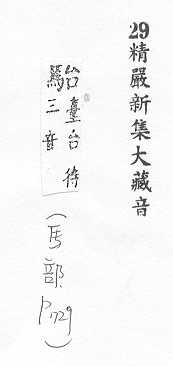 29精嚴新集大藏音
駘臺台待
三音
(馬部
P.1729)